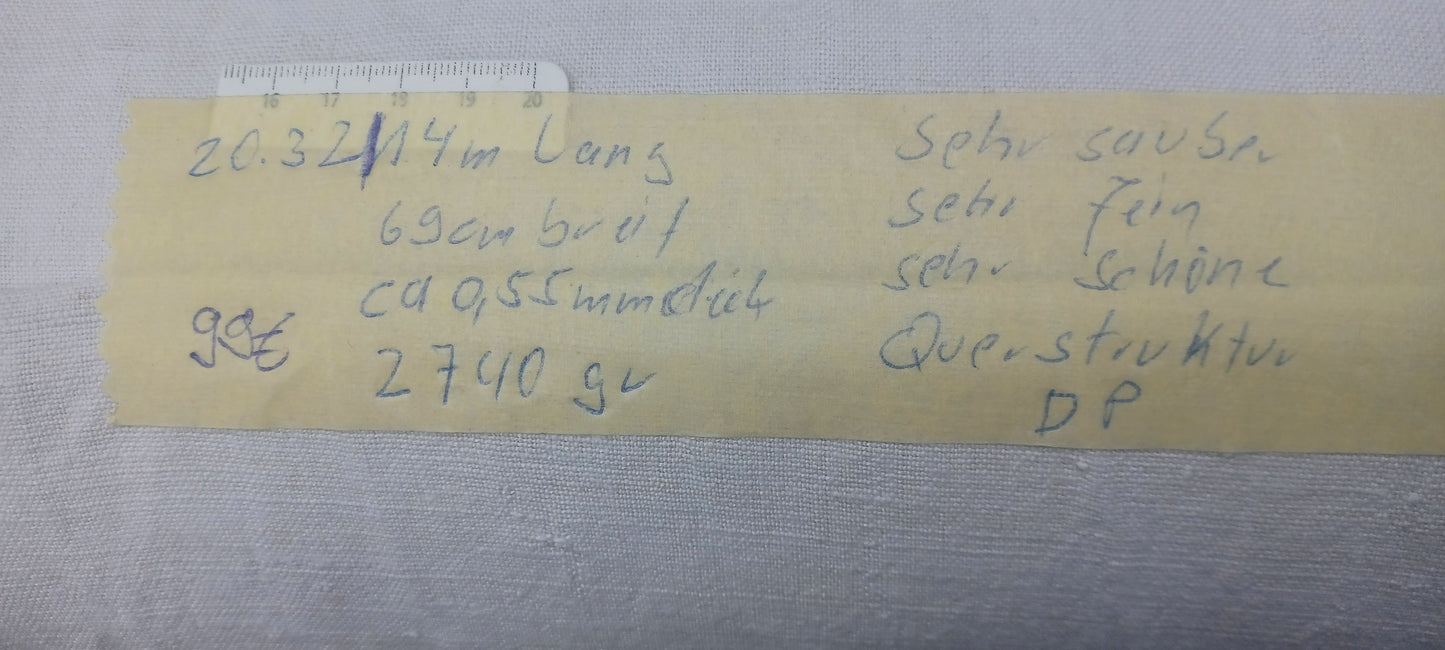 16 17 18 19 20
20.32/14m Lang
69cm breit
ca 0,55mm dick
99€
2740 gr
sehr sauber
sehr fein
sehr schöne
Querstruktur
DP